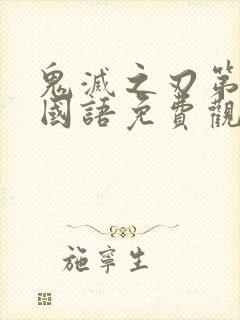 鬼滅之刃第
國語免費觀
施寧生